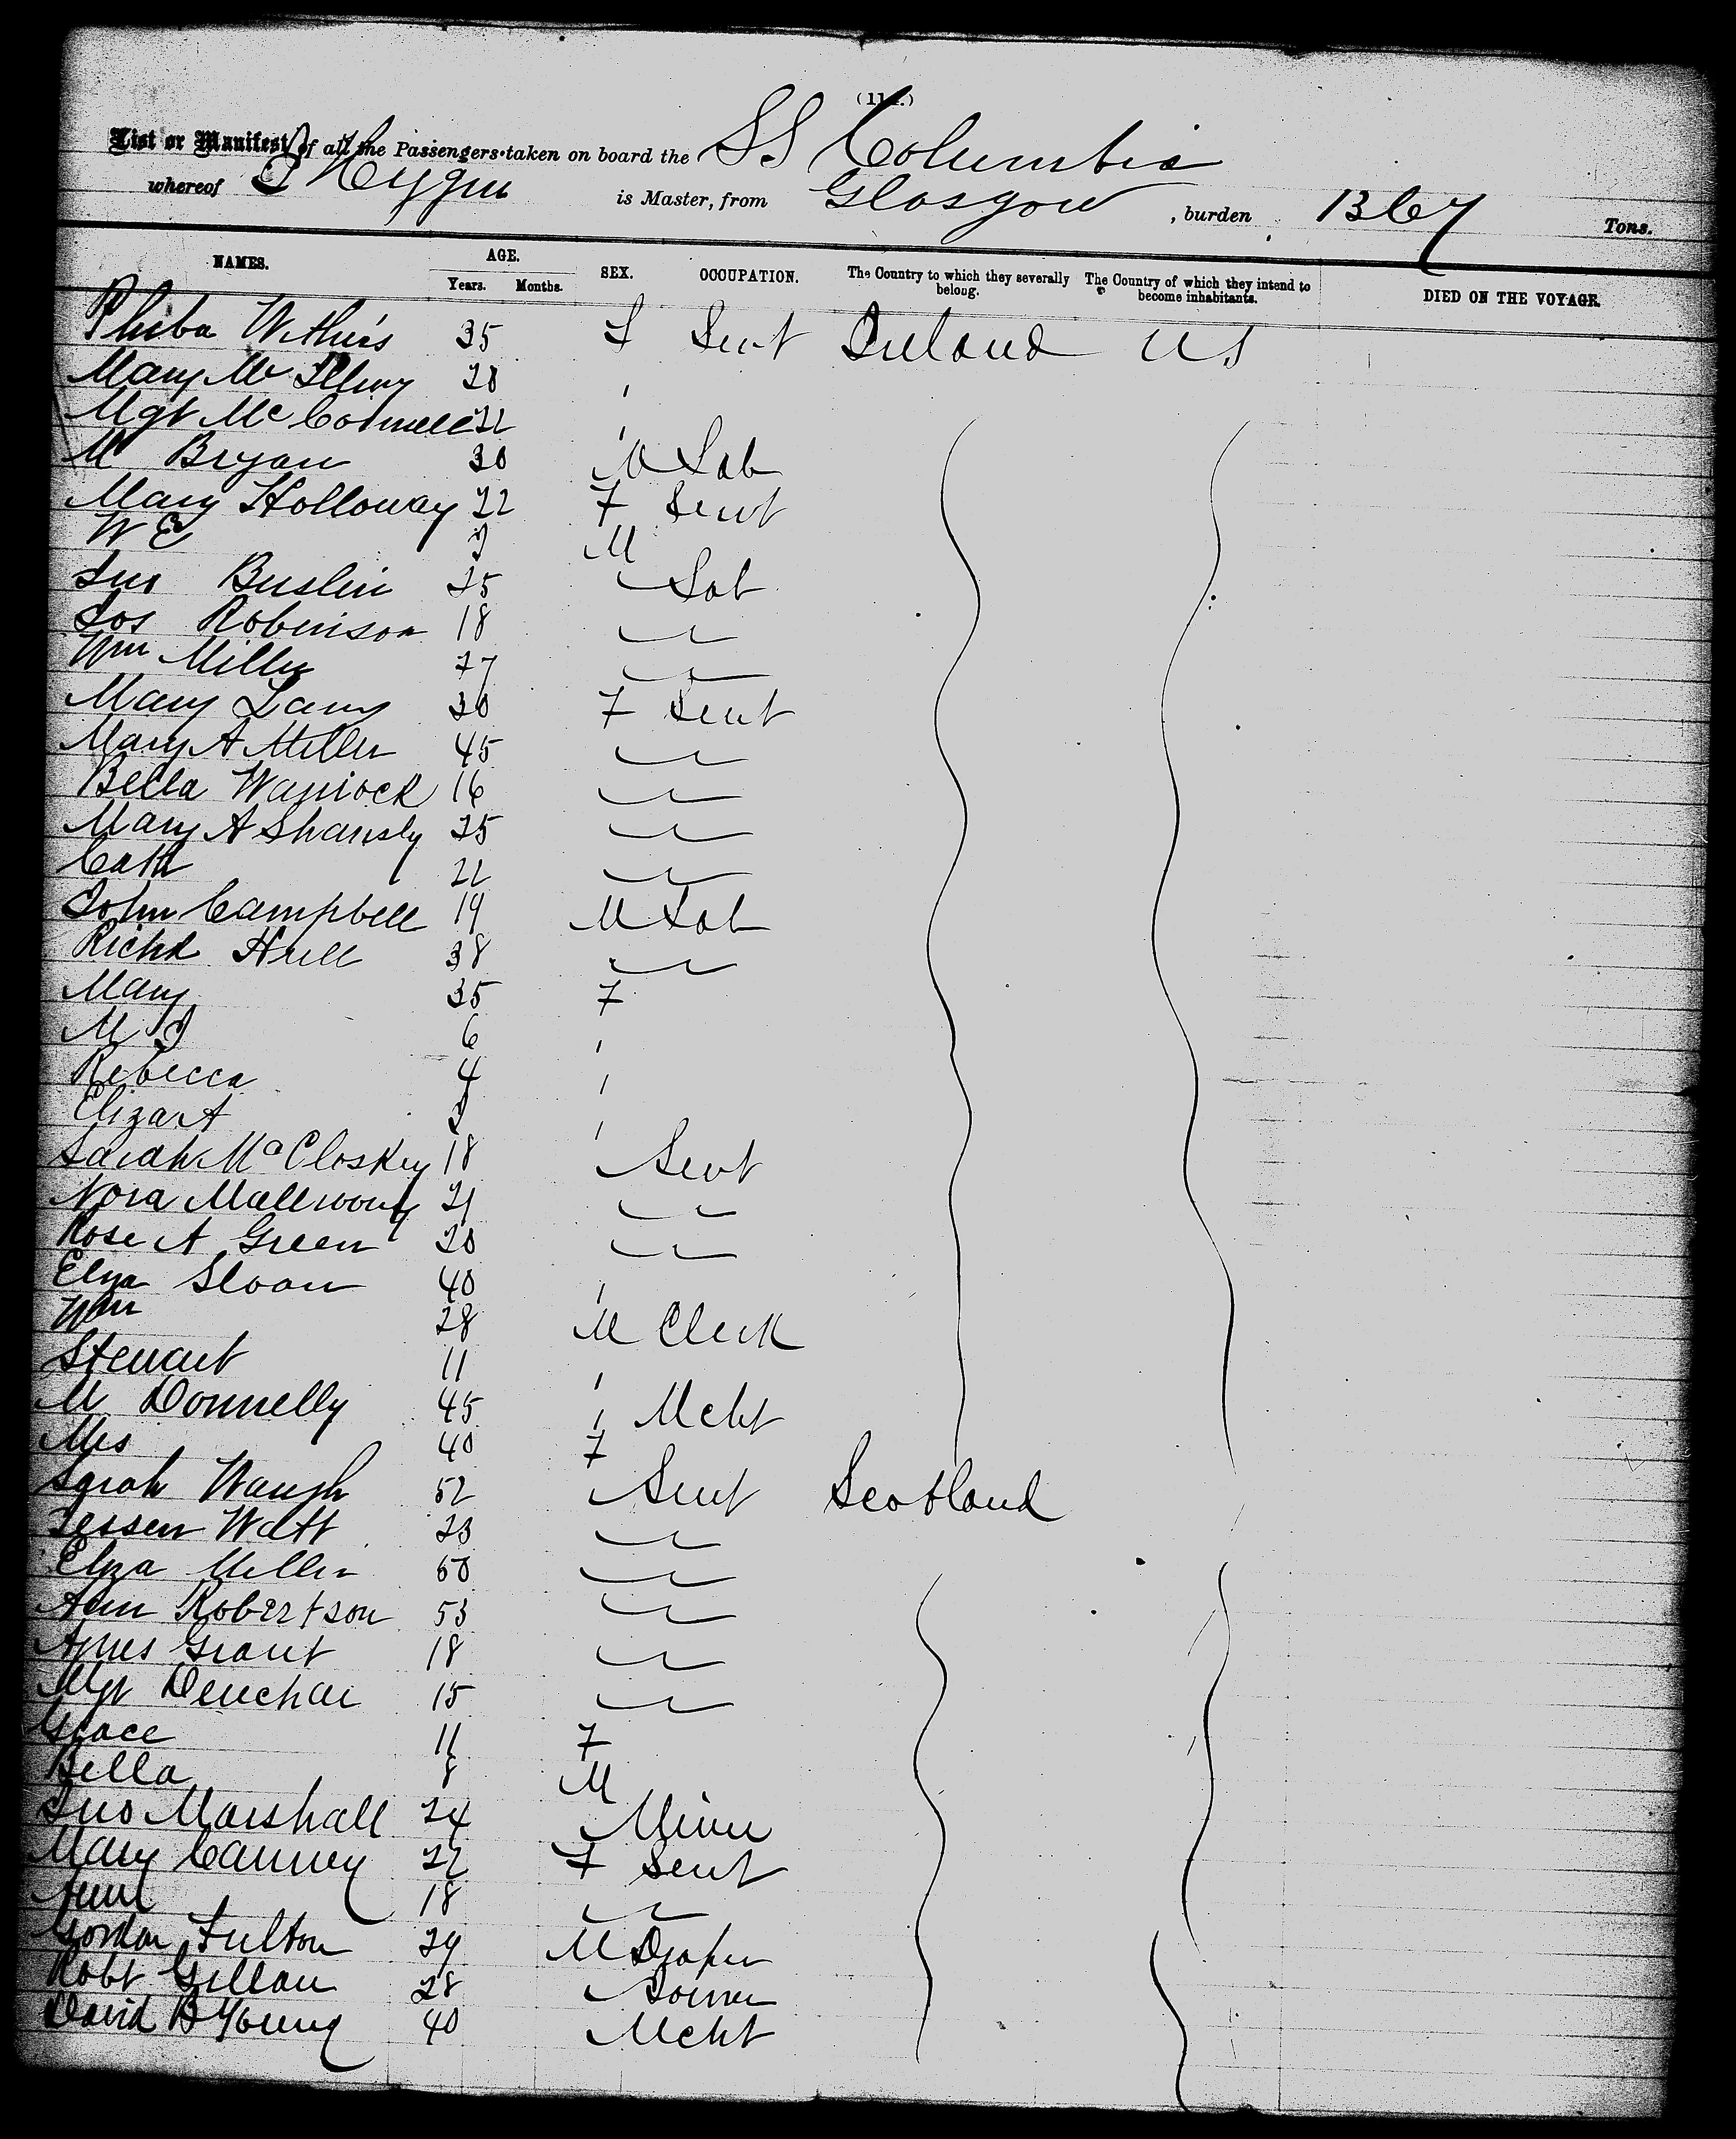 (114.)
List or Manifest of all the Passengers taken on board the SS Columbia
whereof is Master, from Glasgow, burden 1367 Tons.
NAMES. AGE. SEX. OCCUPATION. The Country to which they severally belong. The Country of which they intend to become inhabitants. DIED ON THE VOYAGE.
Years. Months.
Pheba Withers 35 F Servt Ireland US
Mary Mc 20 "
Mgt McConnell 22 "
M Bryan 30 M Lab
Mary Holloway 22 F Servt
W E M
Jno Buslin 25 Lab
Jos Robinson 18
Wm Miller 27
Mary Lany 30 F Servt
Mary A Miller 45
Bella 16
Mary A Shansly 25
Cath 22
John Campbell 19 M Lab
Richd Hull 38
Mary 35 F
M J 6 "
Rebecca 4 "
Eliza A "
Sarah McCloskey 18 Servt
Nora 21
Rose A Green 20
Eliza Sloan 40 "
Wm 28 M Clerk
Stewart 11 "
M Donnelly 45 " Mcht
Mrs 40 F
Sarah Waugh 52 Servt Scotland
Watt 23
Eliza Miller 50
Ann Robertson 53
Agnes Grant 18
Mgt Deuchar 15
Grace 11 F
Bella 8 M
Jno Marshall 24 Miner
Mary Canney 22 F Servt
18
Gordon Fulton 29 M Draper
Robt Gillan 28 Joiner
David B Young 40 Mcht